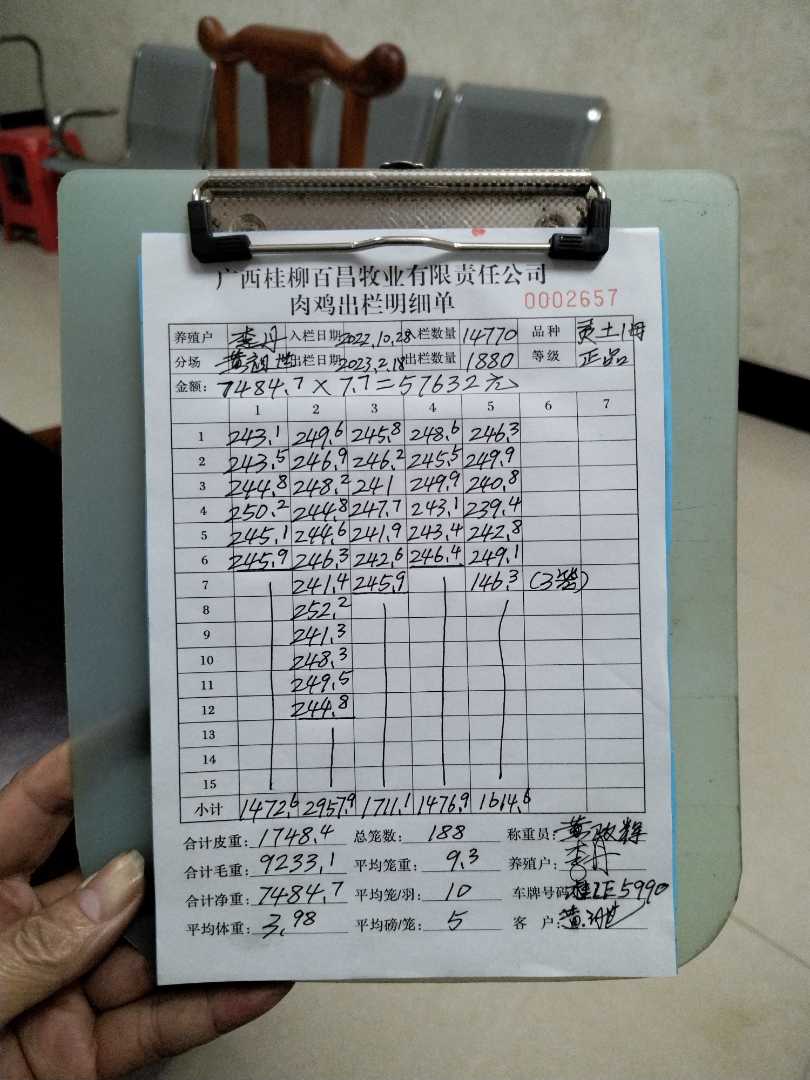 广西桂柳百昌牧业有限责任公司
肉鸡出栏明细单 0002657
养殖户 李丹 入栏日期 2022.10.28 入栏数量 14770 品种 土1母
分场 出栏日期 2023.2.18 出栏数量 1880 等级 正品
金额: 7484.7×7.7=57632元
1 2 3 4 5 6 7
1 243.1 249.6 245.8 248.6 246.3
2 243.5 246.9 246.2 245.5 249.9
3 244.8 248.2 241 249.9 240.8
4 250.2 244.8 247.7 243.1 239.4
5 245.1 244.6 241.9 243.4 242.8
6 245.9 246.3 242.6 246.4 249.1
7 241.4 245.9 146.3 (3
8 252.2
9 241.3
10 248.3
11 249.5
12 244.8
13
14
15
小计 1472.6 2957.9 1711.1 1476.9 1614.6
合计皮重: 1748.4 总笼数: 188 称重员:
合计毛重: 9233.1 平均笼重: 9.3 养殖户: 李丹
合计净重: 7484.7 平均笼/羽: 10 车牌号码: 桂LE5990
平均体重: 3.98 平均磅/笼: 5 客户: